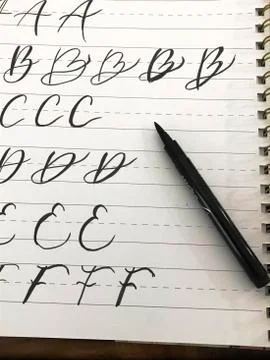 A A
B B B B B
C C C
D D D
E E E
F F F F